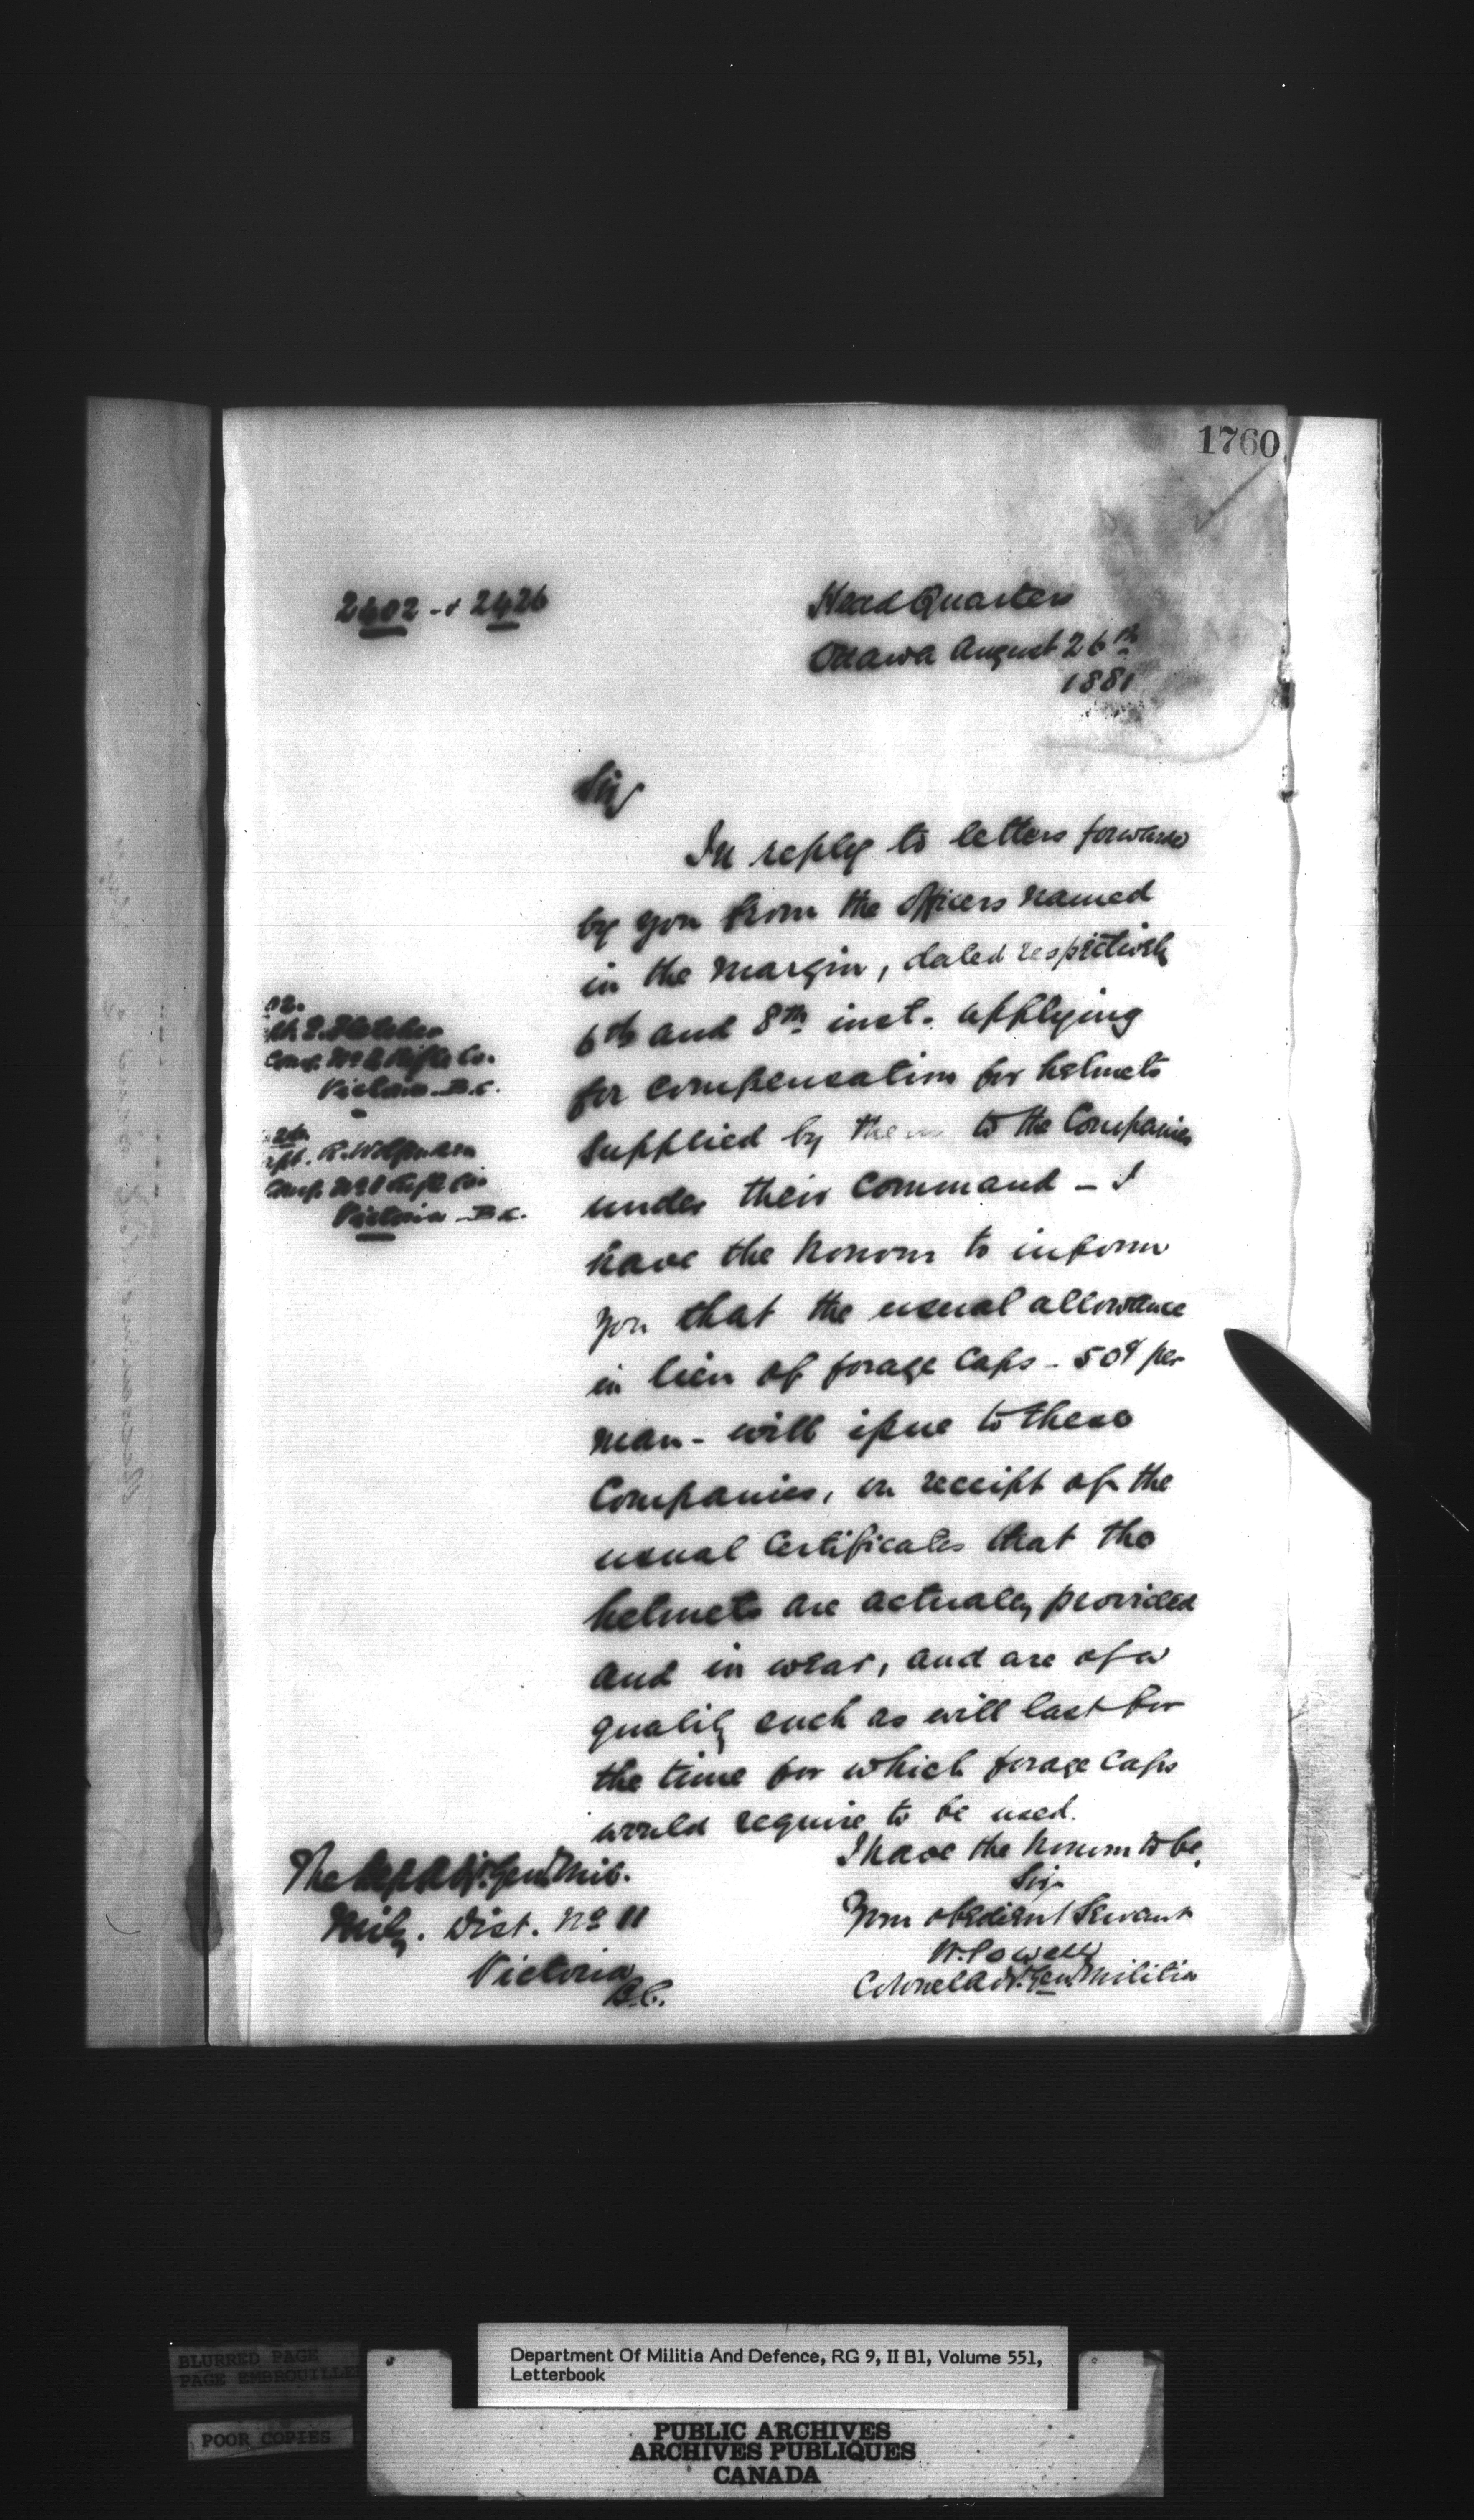 1760
2402 - & 2426
Head Quarters
Ottawa August 26th
1881
Sir
In reply to letters forwarded
by you from the officers named
in the margin, dated respectively
6th and 8th inst. applying
for compensation for helmets
supplied by them to the Companies
under their command - I
have the honour to inform
you that the usual allowance
in lieu of forage caps - 50¢ per
man - will issue to these
Companies, on receipt of the
usual certificates that the
helmets are actually provided
and in wear, and are of a
quality such as will last for
the time for which forage caps
would require to be used.
02.
Fletcher
Comg. No 2 Rifle Co.
Victoria - B.C.
26.
Capt. R. Wolfenden
Comg. No 1 Rifle Co.
Victoria - B.C.
I have the honour to be,
Sir
Your obedient Servant
W. Powell
Colonel Adjt. Genl Militia
The Dep. Adjt. Genl Mil.
Mily. Dist. No 11
Victoria
B.C.
BLURRED PAGE
PAGE EMBROUILLEE
POOR COPIES
Department Of Militia And Defence, RG 9, II B1, Volume 551,
Letterbook
PUBLIC ARCHIVES
ARCHIVES PUBLIQUES
CANADA